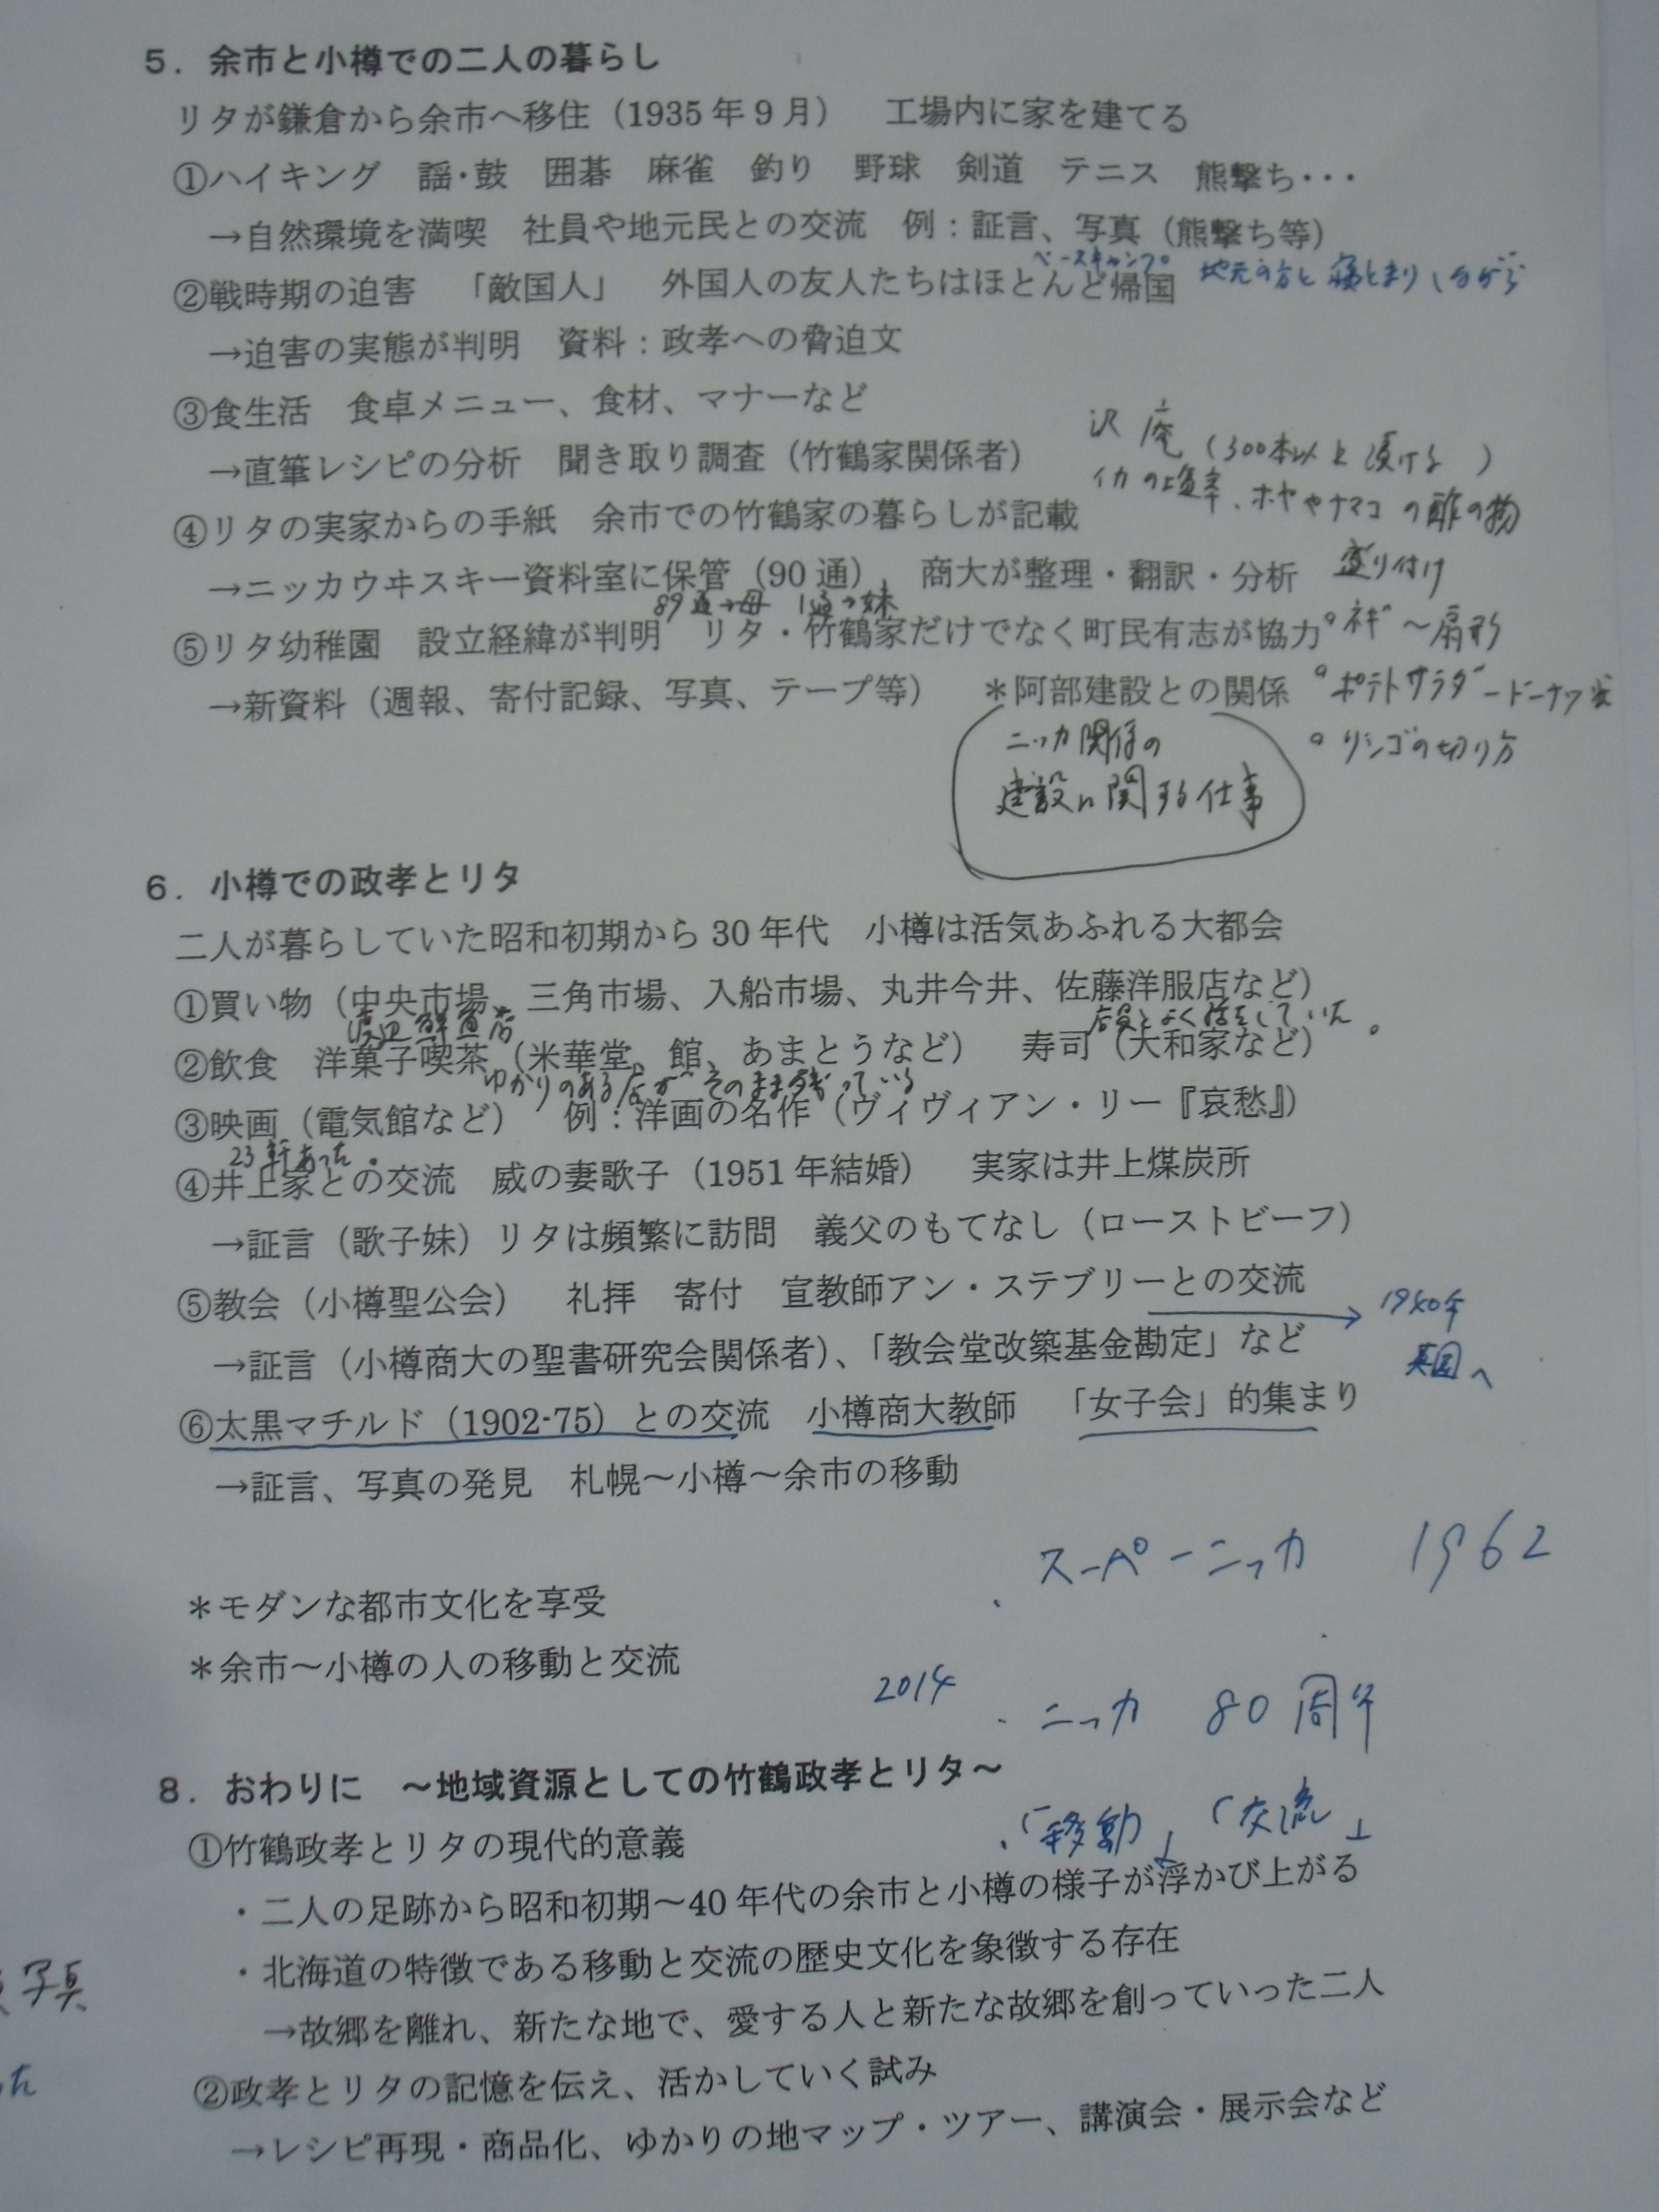 5．余市と小樽での二人の暮らし
リタが鎌倉から余市へ移住（1935年9月）　工場内に家を建てる
①ハイキング　謡・鼓　囲碁　麻雀　釣り　野球　剣道　テニス　熊撃ち・・・
→自然環境を満喫　社員や地元民との交流　例：証言、写真（熊撃ち等）
ベースキャンプ。　地元の方と寝とまりしながら
②戦時期の迫害　「敵国人」　外国人の友人たちはほとんど帰国
→迫害の実態が判明　資料：政孝への脅迫文
③食生活　食卓メニュー、食材、マナーなど
沢庵（300本以上漬ける）
→直筆レシピの分析　聞き取り調査（竹鶴家関係者）
イカの塩辛、ホヤやナマコの酢の物
④リタの実家からの手紙　余市での竹鶴家の暮らしが記載
→ニッカウヰスキー資料室に保管（90通）、商大が整理・翻訳・分析
盛り付け
89通→母　1通→妹
⑤リタ幼稚園　設立経緯が判明　リタ・竹鶴家だけでなく町民有志が協力
。ネギ〜扇形
→新資料（週報、寄付記録、写真、テープ等）　＊阿部建設との関係
。ポテトサラダードーナツ状
。リンゴの切り方
ニッカ関係の
建設に関する仕事
6．小樽での政孝とリタ
二人が暮らしていた昭和初期から30年代　小樽は活気あふれる大都会
①買い物（中央市場、三角市場、入船市場、丸井今井、佐藤洋服店など）
渡辺鮮魚店　店員とよく話をしていた。
②飲食　洋菓子喫茶（米華堂、館、あまとうなど）　寿司（大和家など）
ゆかりのある店がそのまま残っている
③映画（電気館など）　例：洋画の名作（ヴィヴィアン・リー『哀愁』）
23軒あった。
④井上家との交流　威の妻歌子（1951年結婚）　実家は井上煤炭所
→証言（歌子妹）リタは頻繁に訪問　義父のもてなし（ローストビーフ）
⑤教会（小樽聖公会）　礼拝　寄付　宣教師アン・ステブリーとの交流
1940年
英国へ
→証言（小樽商大の聖書研究会関係者）、「教会堂改築基金勘定」など
⑥太黒マチルド（1902-75）との交流　小樽商大教師　「女子会」的集まり
→証言、写真の発見　札幌〜小樽〜余市の移動
・スーパーニッカ　1962
＊モダンな都市文化を享受
＊余市〜小樽の人の移動と交流
2014　・ニッカ　80周年
8．おわりに　〜地域資源としての竹鶴政孝とリタ〜
・「移動」「交流」
①竹鶴政孝とリタの現代的意義
・二人の足跡から昭和初期〜40年代の余市と小樽の様子が浮かび上がる
・北海道の特徴である移動と交流の歴史文化を象徴する存在
→故郷を離れ、新たな地で、愛する人と新たな故郷を創っていった二人
②政孝とリタの記憶を伝え、活かしていく試み
→レシピ再現・商品化、ゆかりの地マップ・ツアー、講演会・展示会など
写真
た